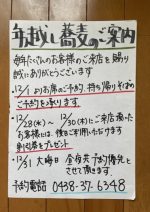 年越し蕎麦のご案内
毎年たくさんのお客様のご来店を賜り
誠にありがとうございます
12/1よりお席のご予約、持ち帰りそばの
ご予約を承ります。
12/28(木)〜12/30(木)にご来店頂いた
お客様には、後日ご利用いただけます
割引券をプレゼント
12/31 大晦日 全席共予約優先と
させて頂きます
予約電話 0438-37-6348